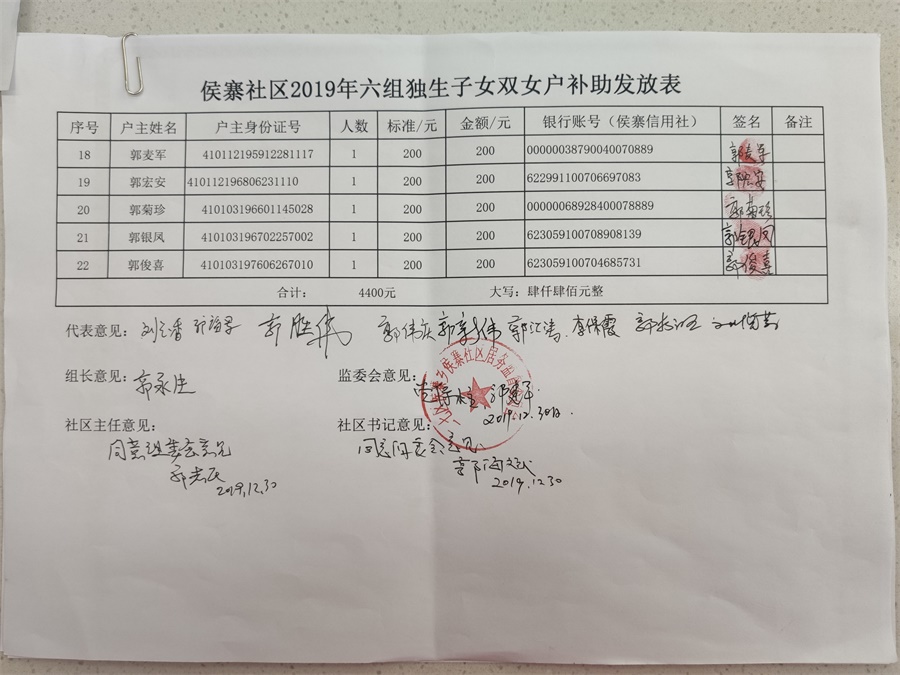 侯寨社区2019年六组独生子女双女户补助发放表
序号 户主姓名 户主身份证号 人数 标准/元 金额/元 银行账号（侯寨信用社） 签名 备注
18 郭麦军 410112195912281117 1 200 200 00000038790040070889 郭麦军
19 郭宏安 410112196806231110 1 200 200 622991100706697083
20 郭菊珍 410103196601145028 1 200 200 00000068928400078889 郭菊珍
21 郭银凤 410103196702257002 1 200 200 623059100708908139 郭银凤
22 郭俊喜 410103197606267010 1 200 200 623059100704685731 郭俊喜
合计： 4400元 大写：肆仟肆佰元整
代表意见： 郭胜伟 郭伟庆 李保霞
组长意见： 郭永生 监委会意见：
2019.12.30日.
社区主任意见： 社区书记意见：
同意组委会意见 同意居委会意见
2019.12.30 2019.12.30